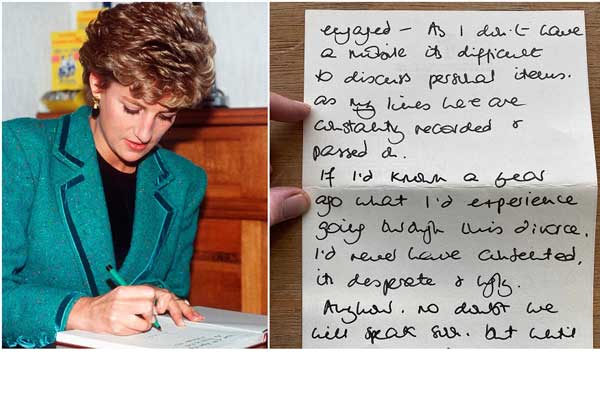 engaged – As I don't have
a mobile its difficult
to discuss personal items.
as my lines here are
constantly recorded &
passed on.
If I'd known a year
ago what I'd experience
going through this divorce.
I'd never have consented,
its desperate & ugly.
Anyhow. no doubt we
will speak soon. but until